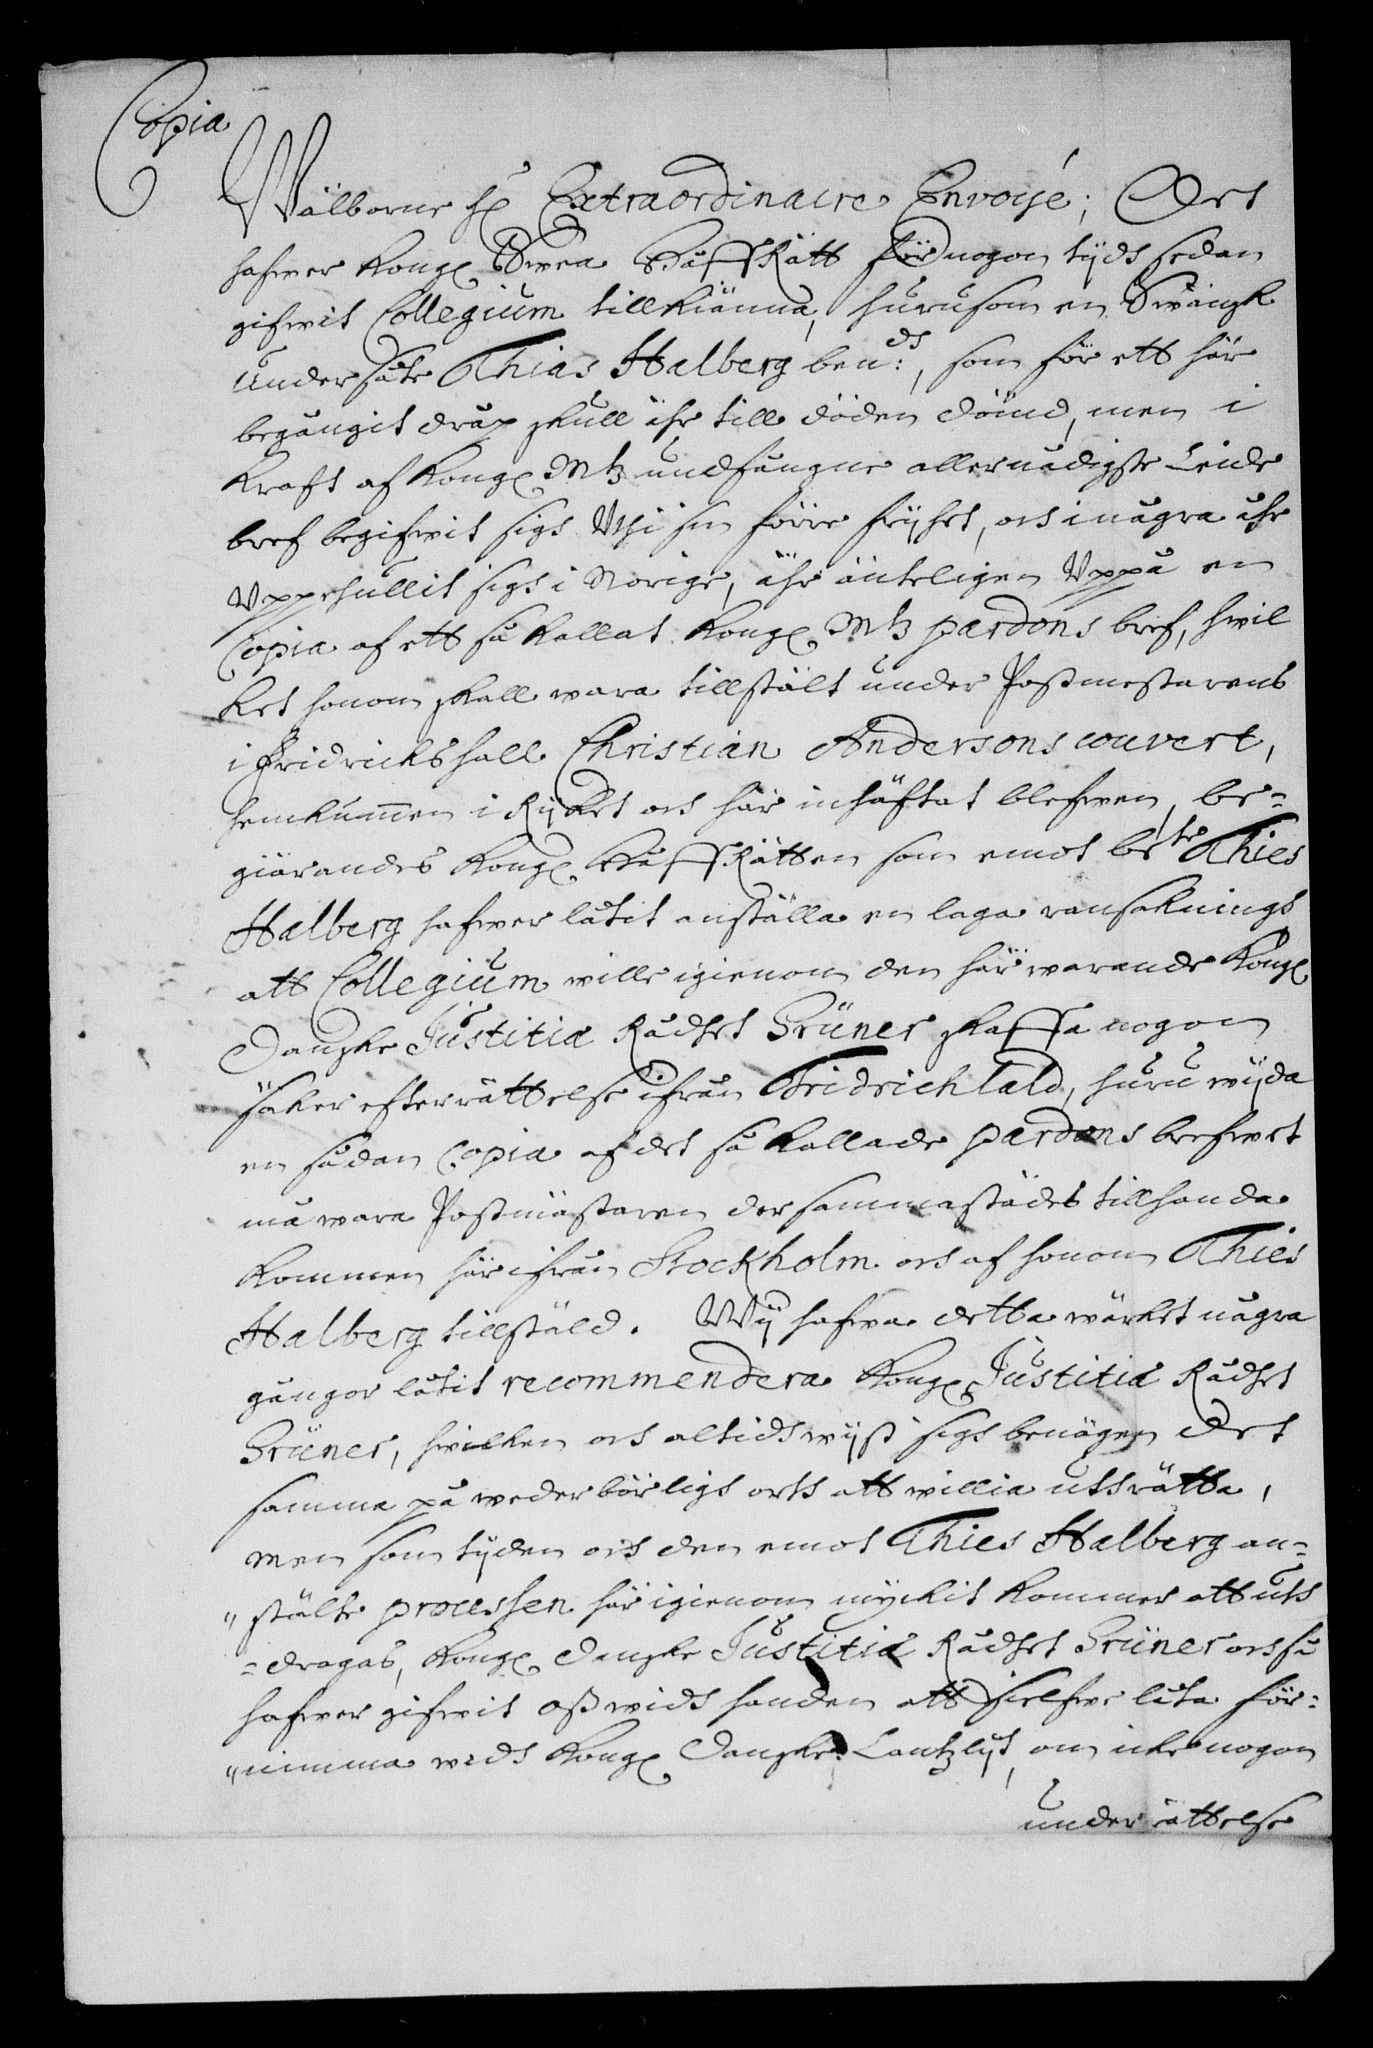 Copia
Wälborne H: Extraordinaire Envoijé; Det
hafwer Kongl. Swea HåffRätt för nogon tijdh sedan
gifwit Collegium tillkiänna, huru som en Swänsk
undersåte Thias Halberg ben:dh, som för ett här
begångit dråp skull ähr till döden dömd, men i
krafft af Kongl. Mtz undfångne allernådigste Leide
bref begifwit sigh Uhi sin förre frijhet, och i några åhr
Uppehållit sigh i Norige, ähr änteligen Uppå en
Copia af ett så kallat Kongl. Mtz pardons bref, hwil
ket honom skall wara tillstält under Postmestarens
i Fridrichshall Christian Andersons couvert,
hemkummen i Rijket och här inhäftat blefwen, be-
giärandes Kongl. HåffRätten som emot be:te Thies
Halberg hafwer låtit anställa en laga ransakningh
att Collegium wille igienom den här warande Kongl.
Danske Justitiæ Rådhet Grüner skaffa nogon
säker efterrättelse ifrån Fridrichlald, huru wijda
en sådan Copia af det så kallade pardons brefwet
må wara Postmästaren dersammastädes tillhanda
kommen här ifrån Stockholm och af honom Thies
Halberg tillstäld. Wij hafwa detta wärket några
gångor låtit recommendera Kongl. Justitiæ Rådhet
Grüner, hwilken och altidh wijst sigh benägen det
samma på wederbörligh orth att willia uthrätta,
men som tijden och den emot Thies Halberg an-
stälte processen här igienom myckit kommer att uth
dragas, Kongl. Danske Justitiæ Rådhet Grüner och så
hafwer gifwit oss widh handen att sielfwe låta för-
nimma widh Kongl. Danske Cantzlijt, om icke nogon
underrättelse